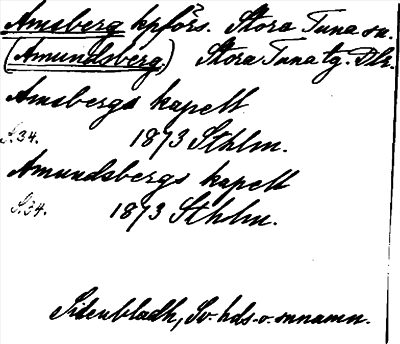 Amsberg kpförs. Stora Tuna sn.
(Amundsberg) Stora Tuna tg. Dlr.
Amsbergs kapell
S. 34. 1873 Sthlm.
Amundsbergs kapell
S. 34. 1873 Sthlm.
Sidenbladh, Sv. hds- o. snnamn.